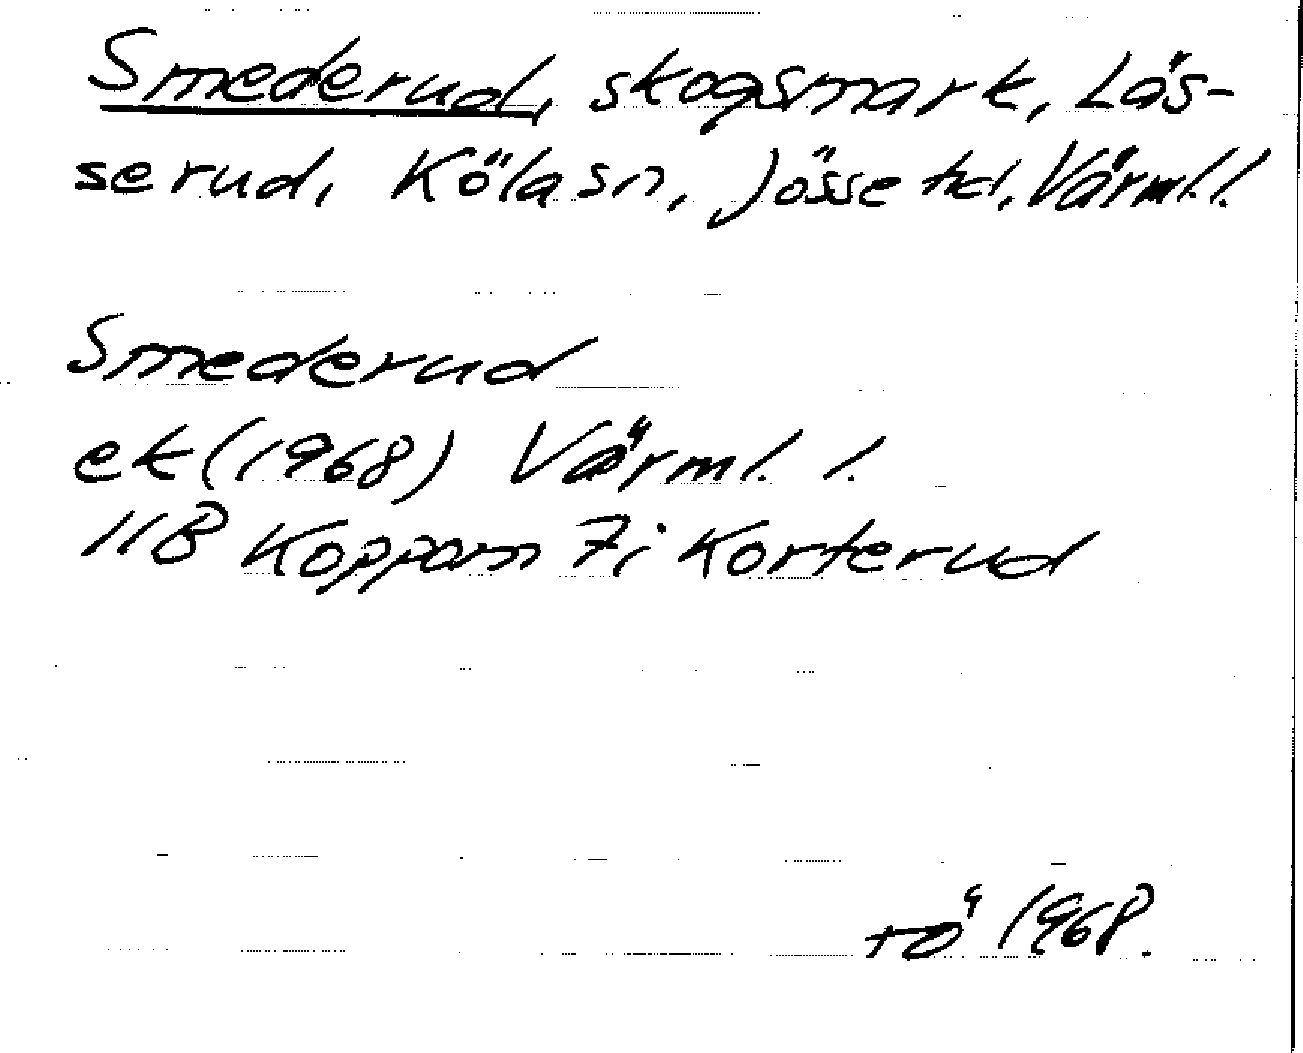 Smederud, skogsmark, Läs-
serud, Köla sn, Jösse hd, Värml. l.
Smederud
ek (1968) Värml. l.
11B Koppom 7i Korterud
TÖ 1968.